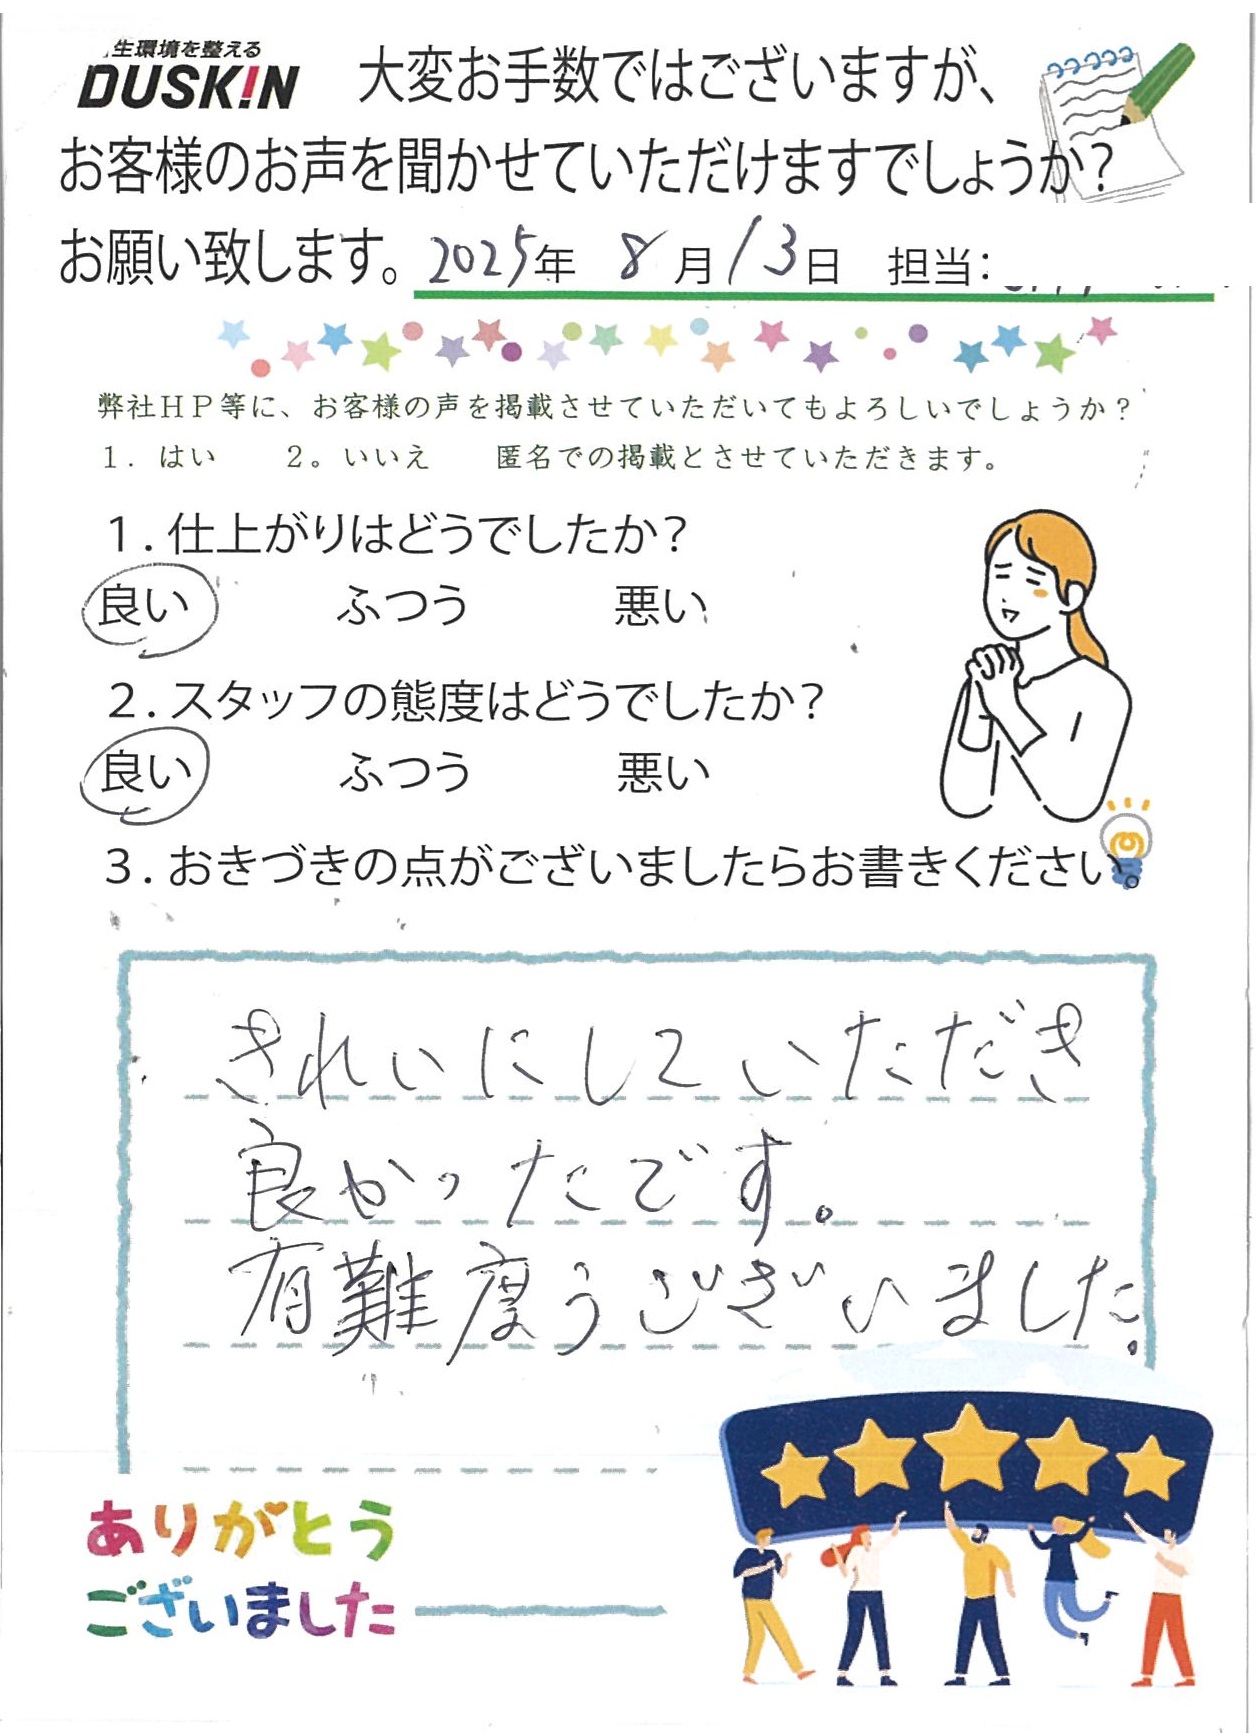 生環境を整える
DUSKIN
大変お手数ではございますが、
お客様のお声を聞かせていただけますでしょうか?
お願い致します。2025年 8月13日 担当:
弊社HP等に、お客様の声を掲載させていただいてもよろしいでしょうか?
1. はい 2。いいえ 匿名での掲載とさせていただきます。
1. 仕上がりはどうでしたか?
良い ふつう 悪い
2. スタッフの態度はどうでしたか?
良い ふつう 悪い
3. おきづきの点がございましたらお書きください。
きれいにしていただき
良かったです。
有難度うございました。
ありがとう
ございました